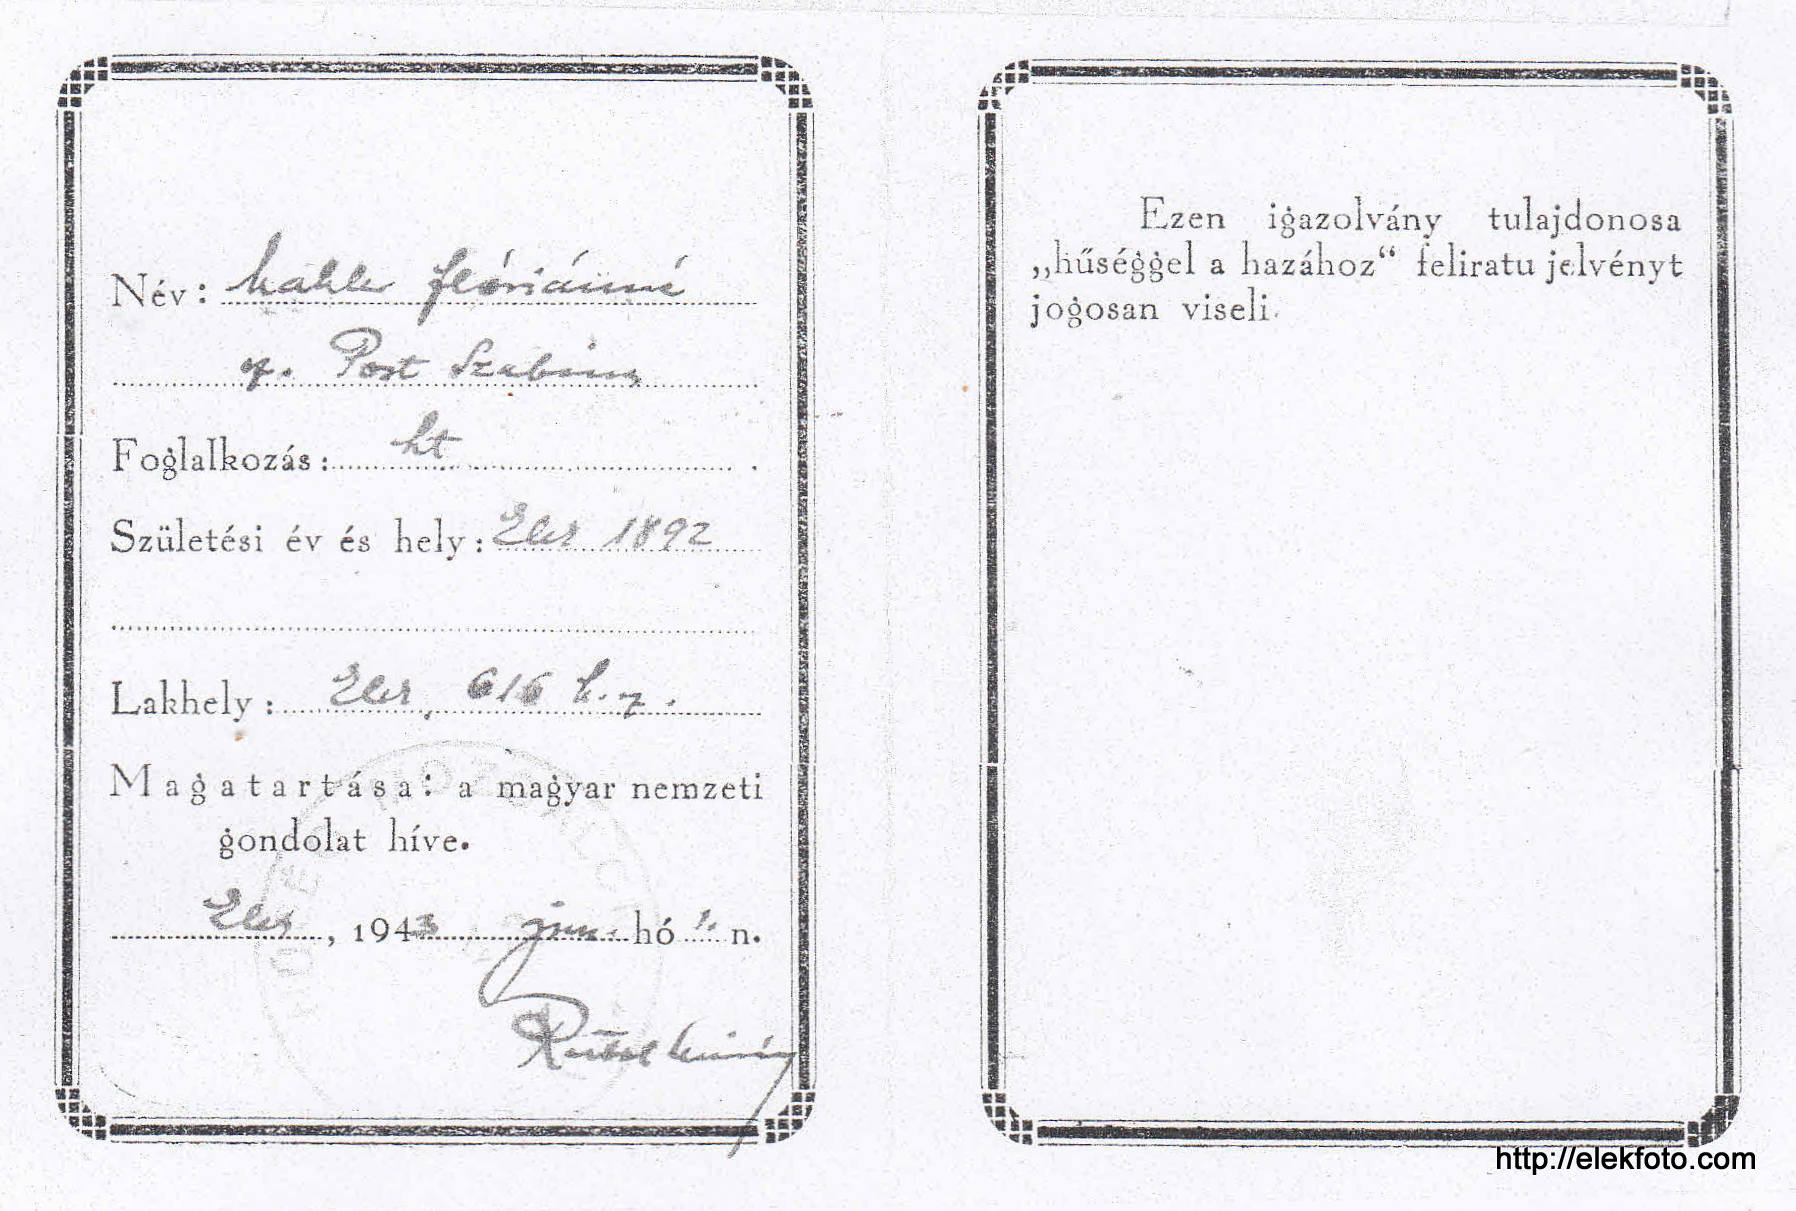 Név: Mahler Flóriánné
sz. Post Szabina
Foglalkozás: ht
Születési év és hely: Elek 1892
Lakhely: Elek, 616 h. sz.
Magatartása: a magyar nemzeti
gondolat híve.
Elek, 1943 jun. hó 1. n.
Ezen igazolvány tulajdonosa
„hűséggel a hazához“ feliratu jelvényt
jogosan viseli.
http://elekfoto.com